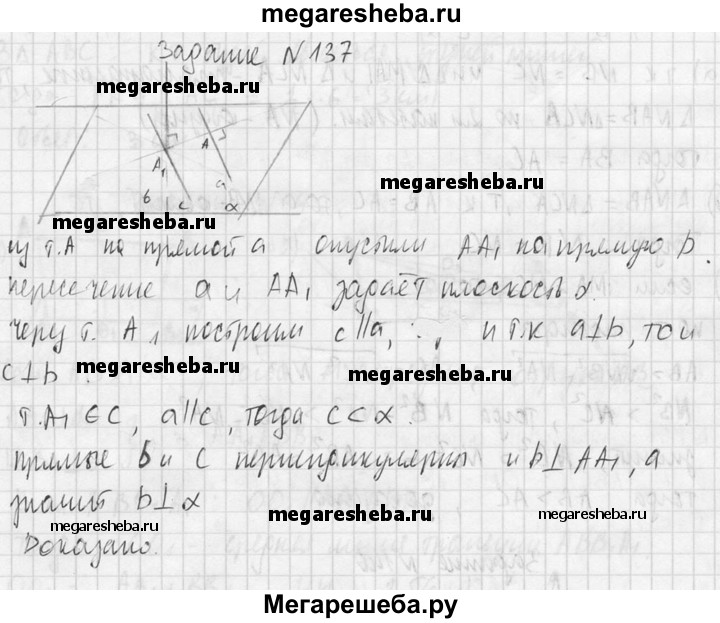 megaresheba.ru
Задание N 137
megaresheba.ru
A₁ A
megaresheba.ru
б c a α
megaresheba.ru
из т.А на прямой a опустили AA₁ на прямую b.
пересечение a и AA₁ задаёт плоскость α.
через т. A₁ построим c||a, ∴, и т.к a⊥b, то и
c⊥b.
megaresheba.ru megaresheba.ru
т.A₁ ∈ c, a||c, тогда c⊂α.
прямые b и c перпендикулярны и b⊥AA₁, а
значит b⊥α
megaresheba.ru megaresheba.ru megaresheba.ru
Доказано.
Мегарешеба.ру